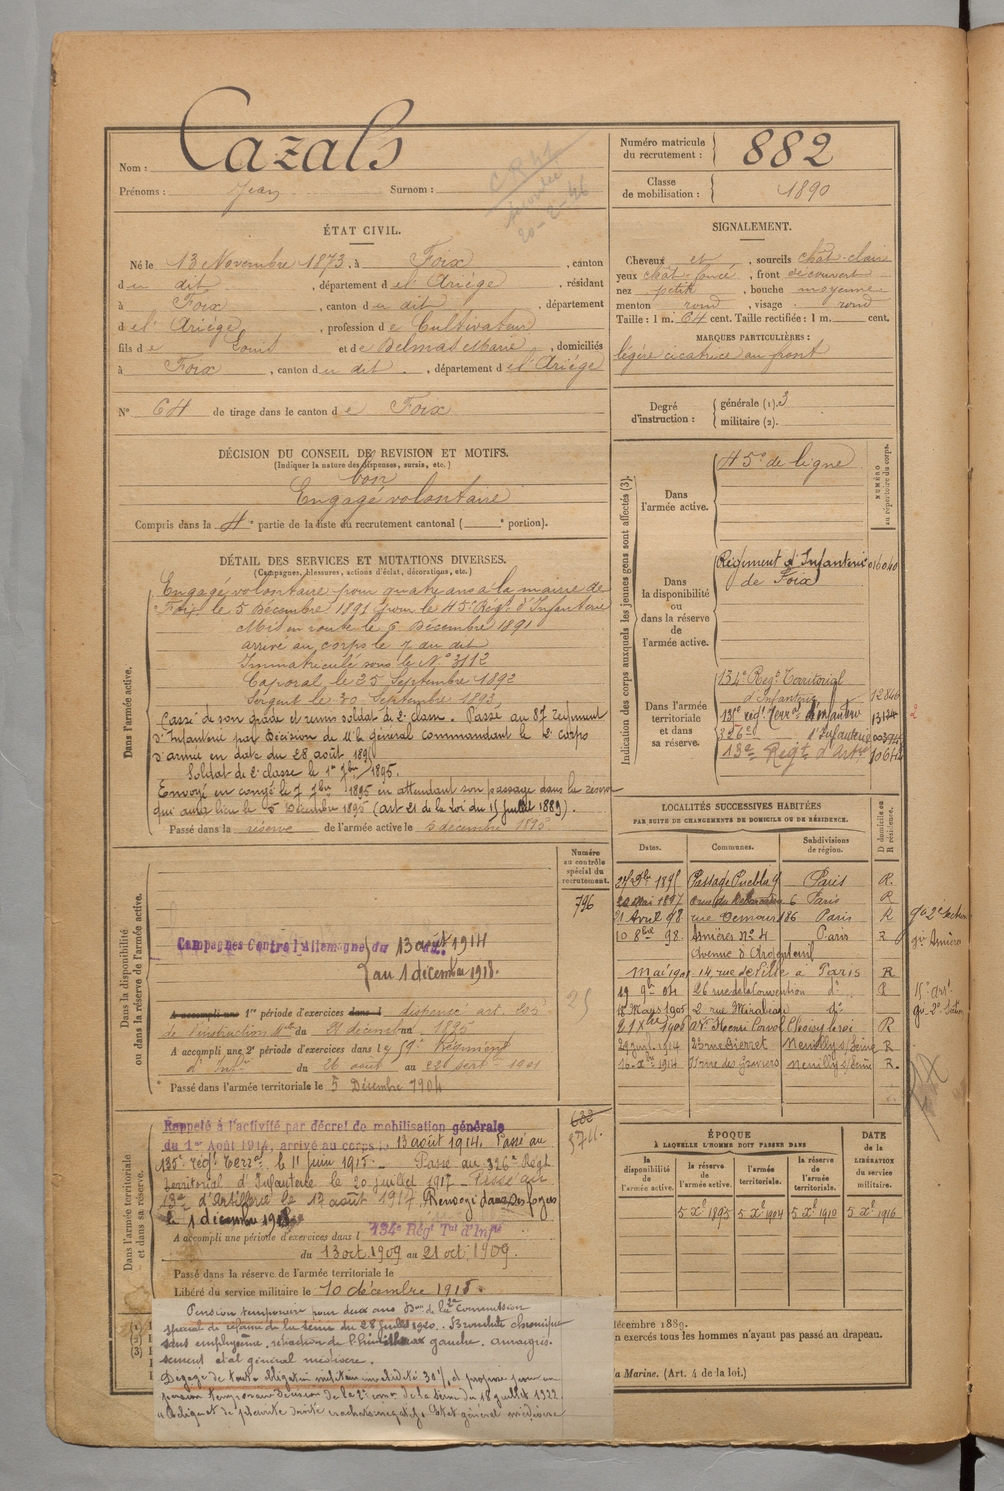 Nom : Cazals
Prénoms : Jean Surnom :
Numéro matricule du recrutement : 882
Classe de mobilisation : 1890
ÉTAT CIVIL.
Né le 13 Novembre 1873, à Foix, canton
du dit, département de l'Ariège, résidant
à Foix, canton du dit, département
de l'Ariège, profession de Cultivateur
fils de Louis et de Delmas Marie, domiciliés
à Foix, canton du dit, département de l'Ariège
N° 64 de tirage dans le canton de Foix
SIGNALEMENT.
Cheveux et, sourcils chât-clair
yeux chât-foncé, front découvert
nez petit, bouche moyenne
menton rond, visage rond
Taille : 1 m. 64 cent. Taille rectifiée : 1 m. cent.
MARQUES PARTICULIÈRES :
légère cicatrice au front
Degré d'instruction : générale (1). 3
militaire (2).
DÉCISION DU CONSEIL DE REVISION ET MOTIFS.
(Indiquer la nature des dispenses, sursis, etc.)
bon
Engagé volontaire
Compris dans la 4e partie de la liste du recrutement cantonal ( portion).
DÉTAIL DES SERVICES ET MUTATIONS DIVERSES.
(Campagnes, blessures, actions d'éclat, décorations, etc.)
Dans l'armée active.
Engagé volontaire pour quatre ans à la mairie de
Foix, le 5 Décembre 1891 pour le 45e Régt d'Infanterie
Mis en route le 6 Décembre 1891
arrivé au corps le 7 du dit
Immatriculé sous le N° 3112
Caporal le 25 Septembre 1892
Sergent le 30 Septembre 1893
Cassé de son grade et remis soldat de 2e classe. Passé au 87 régiment
d'Infanterie par Décision de Mr le général commandant le 2e corps
d'armée en date du 28 août 1895
Soldat de 2e classe le 1er 7bre 1895.
Envoyé en congé le 7 7bre 1895 en attendant son passage dans la réserve
qui aura lieu le 5 Décembre 1895 (art 21 de la loi du 15 Juillet 1889).
Passé dans la réserve de l'armée active le 5 décembre 1895
Indication des corps auxquels les jeunes gens sont affectés (3).
NUMÉRO au répertoire du corps.
Dans l'armée active.
45e de ligne
Dans la disponibilité ou dans la réserve de l'armée active.
Régiment d'Infanterie 016040
de Foix
Dans l'armée territoriale et dans sa réserve.
134e Régt Territorial
d'Infanterie 12846
135e régt Terral d'infanterie 13124
326e d'Infanterie
13e Régt d'Artie
LOCALITÉS SUCCESSIVES HABITÉES
PAR SUITE DE CHANGEMENTS DE DOMICILE OU DE RÉSIDENCE.
Dates. Communes. Subdivisions de région. D domicile ou R résidence.
27 Xbre 1895 Passage Puebla 9 Paris R.
20 Mai 1897 6 Paris R
21 Avril 98 rue Demours 86 Paris R
10 8bre 98. Asnières N° 4 Paris R
Avenue d'Argenteuil
Mai 1901 14 rue de Lille à Paris R
19 9bre 04 26 rue de la Convention do R
15 Mars 1905 2 rue Mirabeau do
21 Xbre 1906 Ave Henri Choisy le roi R
Juil. 1914 23 rue Pierret Neuilly s/Seine R
16 Xbre 1914 rue des Graviers Neuilly s/Seine R.
Dans la disponibilité ou dans la réserve de l'armée active.
Numéro au contrôle spécial du recrutement.
796
Campagnes Contre l'Allemagne du 13 août 1914
au 1 décembre 1918.
A accompli une 1re période d'exercices dans l dispensé art. 203
de l'instruction Mle du 28 décembre 1895
A accompli une 2e période d'exercices dans l e 59e Régiment
d'Infie du 26 août au 22 Sept. 1901
Passé dans l'armée territoriale le 5 Décembre 1904
Dans l'armée territoriale et dans sa réserve.
632
Rappelé à l'activité par décret de mobilisation générale
du 1er Août 1914, arrivé au corps le 13 août 1914. Passé au
135e régt Terral le 11 juin 1915. Passé au 326e Régt
Territorial d'Infanterie le 20 juillet 1917. Passé au
13e d'Artillerie le 13 août 1917. Renvoyé dans ses foyers
le 1 décembre 1918.
A accompli une période d'exercices dans l 134e Rég Tal d'Infie
du 13 oct. 1909 au 21 oct. 1909.
Passé dans la réserve de l'armée territoriale le
Libéré du service militaire le 10 décembre 1918.
ÉPOQUE
À LAQUELLE L'HOMME DOIT PASSER DANS
DATE de la LIBÉRATION du service militaire.
la disponibilité de l'armée active. la réserve de l'armée active. l'armée territoriale. la réserve de l'armée territoriale.
5 Xe 1895 5 Xe 1904 5 Xe 1910 5 Xe 1916
Pension temporaire pour deux ans Don de la 2e Commission
spécial de réforme de la Seine du 28 Juillet 1920. Bronchite chronique
sans emphysème, gauche. amaigris-
sement état général médiocre.
Dégagé de toute obligation militaire invalidité 30%, et proposé pour une
pension temporaire décision de la 2e comon de la Seine du 18 juillet 1922
Reliquat de pleurite droite crachats négatifs. Etat général médiocre
décembre 1889.
n exercés tous les hommes n'ayant pas passé au drapeau.
a Marine. (Art. 4 de la loi.)